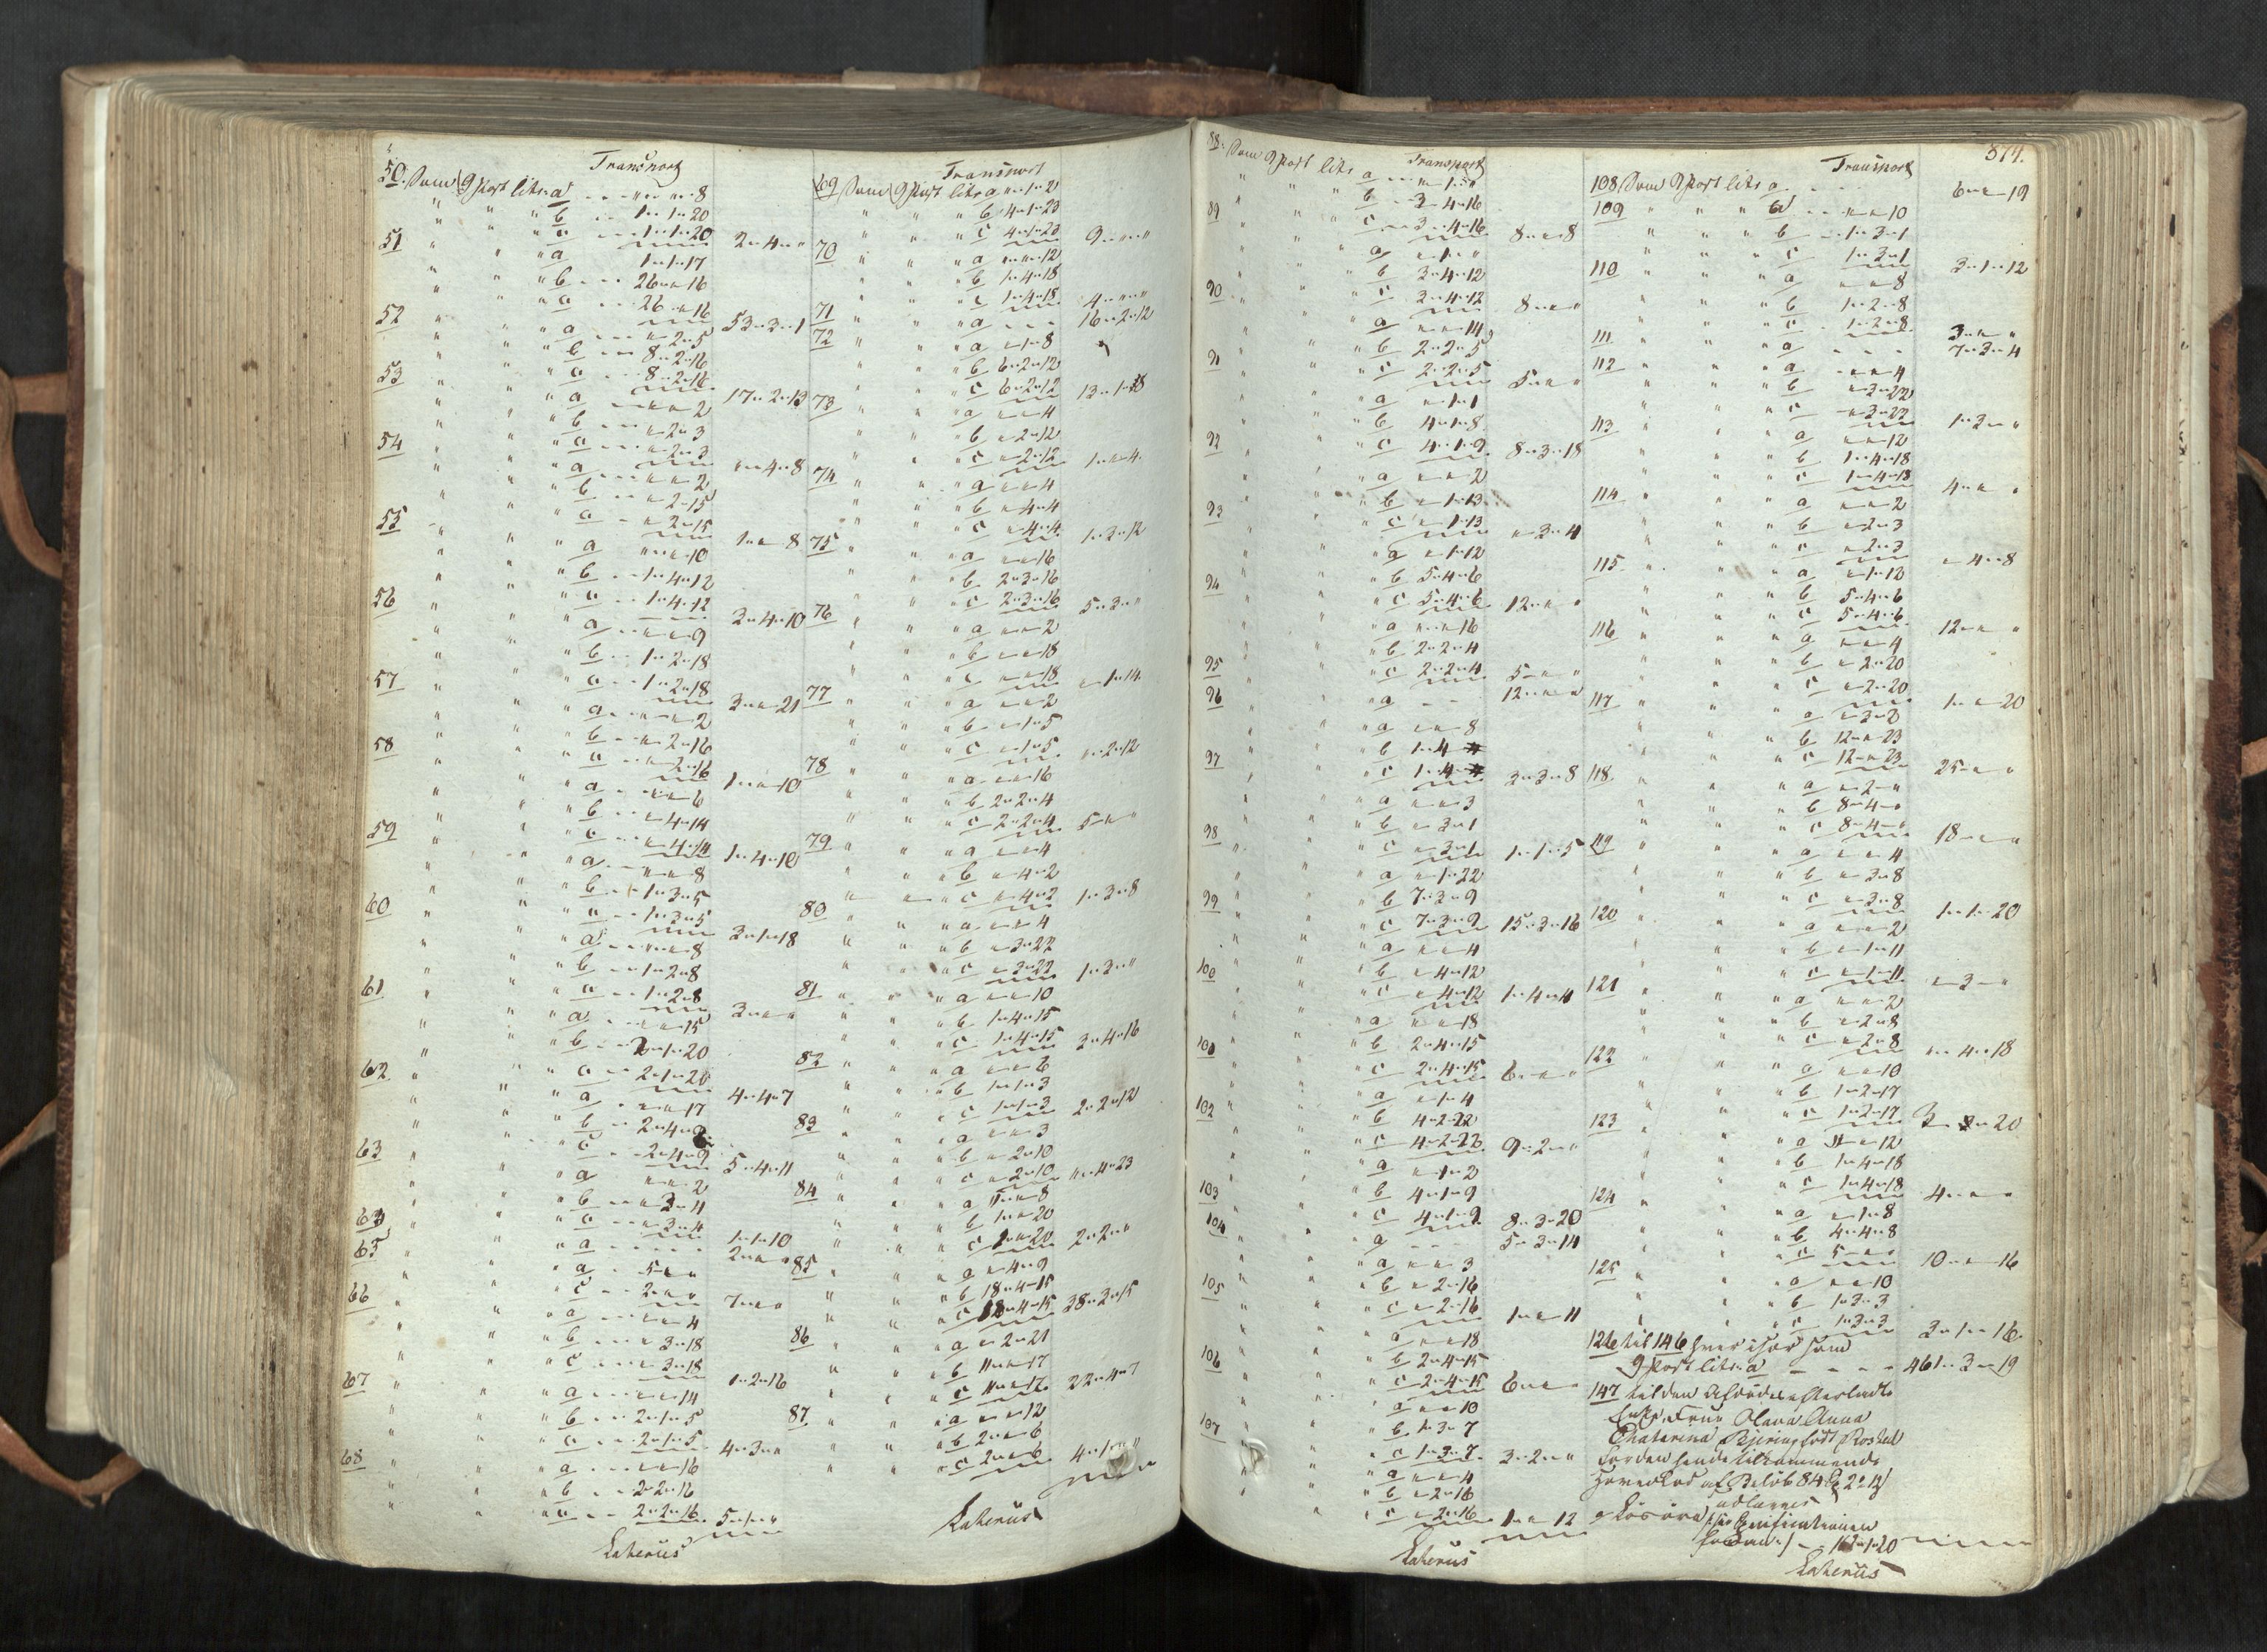 Transport
50. Som 9 Post litr. a - - " " 8
" " " b - - 1 " 1 " 20
" " " c - - 1 " 1 " 20 2 " 4 " "
51 " " " a 1 " 1 " 17
" " " b - - 26 " " 16
" " " c - - 26 " " 16 53 " 3 " 1
52 " " " a - - " 2 " 5
" " " b - - 8 " 2 " 16
" " " c - - 8 " 2 " 16 17 " 2 " 13
53 " " " a - - " " 2
" " " b - - " 2 " 3
" " " c - - " 2 " 3 " " 4 " 8
54 " " " a - - " " 2
" " " b - - " 2 " 15
" " " c - - " 2 " 15 1 " " 8
55 " " " a " " 10
" " " b - - 1 " 4 " 12
" " " c - - 1 " 4 " 12 3 " 4 " 10
56 " " " a - - " " 9
" " " b - - 1 " 2 " 18
" " " c - - 1 " 2 " 18 3 " " 21
57 " " " a - - " " 2
" " " b - - " 2 " 16
" " " c - - " 2 " 16 1 " " 10
58 " " " a - - " " 6
" " " b - - " 4 " 14
" " " c - - " 4 " 14 1 " 4 " 10
59 " " " a - - " " 8
" " " b - - 1 " 3 " 5
" " " c - - 1 " 3 " 5 3 " 1 " 18
60 " " " a - - " " 8
" " " b - - 1 " 2 " 8
" " " c - - 1 " 2 " 8 3 " " "
61 " " " a - - " " 15
" " " b - - 2 " 1 " 20
" " " c - - 2 " 1 " 20 4 " 4 " 7
62 " " " a - - " " 17
" " " b - - 2 " 4 " 9
" " " c - - 2 " 4 " 9 5 " 4 " 11
63 " " " a " " 2
" " " b - - " 3 " 4
" " " c - - " 3 " 4 1 " 1 " 10
64 " " " a - - - - 2 " " "
65 " " " a - 5 " " "
" " " c - - 2 " " " 7 " " "
66 " " " a - - " " 4
" " " b - - " 3 " 18
" " " c - - " 3 " 18 1 " 2 " 16
67 " " " a - - " " 14
" " " b - - 2 " 1 " 5
" " " c - - 2 " 1 " 5 4 " 3 " "
68 " " " a - - " " 16
" " " b - - 2 " 2 " 16
" " " c - - 2 " 2 " 16 5 " 1 " "
Laterus
Transport
69 Som 9 Post litr a " 1 " 2
" " " b 4 " 1 " 23
" " " c 4 " 1 " 23 9 " " "
70 " " " a " " 12
" " " b 1 " 4 " 18
" " " c 1 " 4 " 18 4 " " "
71 " " " a - - - 16 " 2 " 12
72 " " " a " 1 " 8
" " " b 6 " 2 " 12
" " " c 6 " 2 " 12 13 " 1 " 8
73 " " " a " " 4
" " " b " 2 " 12
" " " c " 2 " 12 1 " " 4
74 " " " a " " 4
" " " b " 4 " 4
" " " c " 4 " 4 1 " 3 " 12
75 " " " a " " 16
" " " b 2 " 3 " 16
" " " c 2 " 3 " 16 5 " 3 " "
76 " " " a " " 2
" " " b " " 18
" " " c " " 18 " 1 " 14
77 " " " a " " 2
" " " b " 1 " 5
" " " c " 1 " 5 " 2 " 12
78 " " " a " " 16
" " " b 2 " 2 " 4
" " " c 2 " 2 " 4 5 " " "
79 " " " a " " 4
" " " b " 4 " 2
" " " c " 4 " 2 1 " 3 " 8
80 " " " a " " 4
" " " b " 3 " 22
" " " c " 3 " 22 1 " 3 " "
81 " " " a " " 10
" " " b 1 " 4 " 15
" " " c 1 " 4 " 15 3 " 4 " 16
82 " " " a " " 6
" " " b 1 " 1 " 3
" " " c 1 " 1 " 3 2 " 2 " 12
83 " " " a " " 3
" " " b " 2 " 10
" " " c " 2 " 10 " 4 " 23
84 " " " a " " 8
" " " b 1 " " 20
" " " c 1 " " 20 2 " 2 " "
85 " " " a " 4 " 9
" " " b 18 " 4 " 15
" " " c 18 " 4 " 15 38 " 3 " 15
86 " " " a " 2 " 21
" " " b 11 " " 17
" " " c 11 " " 17 22 " 4 " 7
87 " " " a " " 12
" " " b 2 " " 6
" " " c 2 " " 6 4 " 1 " "
Laterus
Transport
88. Som 9 Post litr a " 1 " "
" " " b 3 " 4 " 16
" " " c 3 " 4 " 16 8 " " 8
89 " " " a " 1 " "
" " " b 3 " 4 " 12
" " " c 3 " 4 " 12 8 " " "
90 " " " a " " 14
" " " b 2 " 2 " 5
" " " c 2 " 2 " 5 5 " " "
91 " " " a " 1 " 1
" " " b 4 " 1 " 8
" " " c 4 " 1 " 9 8 " 3 " 18
92 " " " a " " 2
" " " b " 1 " 13
" " " c " 1 " 13 " 3 " 4
93 " " " a " 1 " 12
" " " b 5 " 4 " 6
" " " c 5 " 4 " 6 12 " " "
94 " " " a " " 16
" " " b 2 " 2 " 4
" " " c 2 " 2 " 4 5 " " "
95 " " " a - - 12 " " "
96 " " " a " " 8
" " " b 1 " 4
" " " c 1 " 4 3 " 3 " 8
97 " " " a " " 3
" " " b " 3 " 1
" " " c " 3 " 1 1 " 1 " 5
98 " " " a " 1 " 22
" " " b 7 " 3 " 9
" " " c 7 " 3 " 9 15 " 3 " 16
99 " " " a " " 4
" " " b " 4 " 12
" " " c " 4 " 12 1 " 4 " 4
100 " " " a " " 18
" " " b 2 " 4 " 15
" " " c 2 " 4 " 15 6 " " "
101 " " " a " 1 " 4
" " " b 4 " 2 " 22
" " " c 4 " 2 " 22 9 " 2 " "
102 " " " a " 1 " 2
" " " b 4 " 1 " 9
" " " c 4 " 1 " 9 8 " 3 " 20
103 " " " a - - 5 " 3 " 14
104 " " " a " " 3
" " " b " 2 " 16
" " " c " 2 " 16 1 " " 11
105 " " " a " " 18
" " " b 2 " 4 " 15
" " " c 2 " 4 " 15 6 " " "
106 " " " a " " 10
" " " b 1 " 3 " 7
" " " c 1 " 3 " 7 3 " 2 " "
107 " " " a " " 4
" " " b " 2 " 16
" " " c " 2 " 16 1 " " 12
Laterus
374.
Transport
108 Som 9 Post litr a - - - 6 " " 19
109 " " " a - - " " 10
" " " b - 1 " 3 " 1
" " " c 1 " 3 " 1 3 " 1 " 12
110 " " " a " " 8
" " " b 1 " 2 " 8
" " " c 1 " 2 " 8 3 " " "
111 " " " a - - - 7 " 3 " 4
112 " " " a " " 4
" " " b " 3 " 22
" " " c " 3 " 22 1 " 3 " "
113 " " " a " " 12
" " " b 1 " 4 " 18
" " " c 1 " 4 " 18 4 " " "
114 " " " a " " 2
" " " b " 2 " 3
" " " c " 2 " 3 " 4 " 8
115 " " " a " 1 " 12
" " " b 5 " 4 " 6
" " " c 5 " 4 " 6 12 " " "
116 " " " a " " 4
" " " b " 2 " 20
" " " c " 2 " 20 1 " " 20
117 " " " a " 3 " 2
" " " b 12 " " 23
" " " c 12 " " 23 25 " " "
118 " " " a " 2 " "
" " " b 8 " 4 " "
" " " c 8 " 4 " " 18 " " "
119 " " " a " " 4
" " " b " 3 " 8
" " " c " 3 " 8 1 " 1 " 20
120 " " " a " " 2
" " " b " 1 " 11
" " " c " 1 " 11 " 3 " "
121 " " " a " " 2
" " " b " 2 " 8
" " " c " 2 " 8 " 4 " 18
122 " " " a " " 10
" " " b 1 " 2 " 17
" " " c 1 " 2 " 17 3 " " 20
123 " " " a " " 12
" " " b 1 " 4 " 18
" " " c 1 " 4 " 18 4 " " "
124 " " " a " 1 " 8
" " " b 4 " 4 " 8
" " " c 5 " " " 10 " " 16
125 " " " a " " 10
" " " b 1 " 3 " 3
" " " c 1 " 3 " 3 3 " 1 " 16
126 til 146 hver især som
9 Post litr. a - - - 461 " 3 " 19
147 til den Afdødes efterladte
Enke, Frue Olava Anna
Chatarina Bjering født Rosted
for den hende tilkommende
Hovedlod af Beløb 84 2 12
udlægges
Løsøre
Laterus